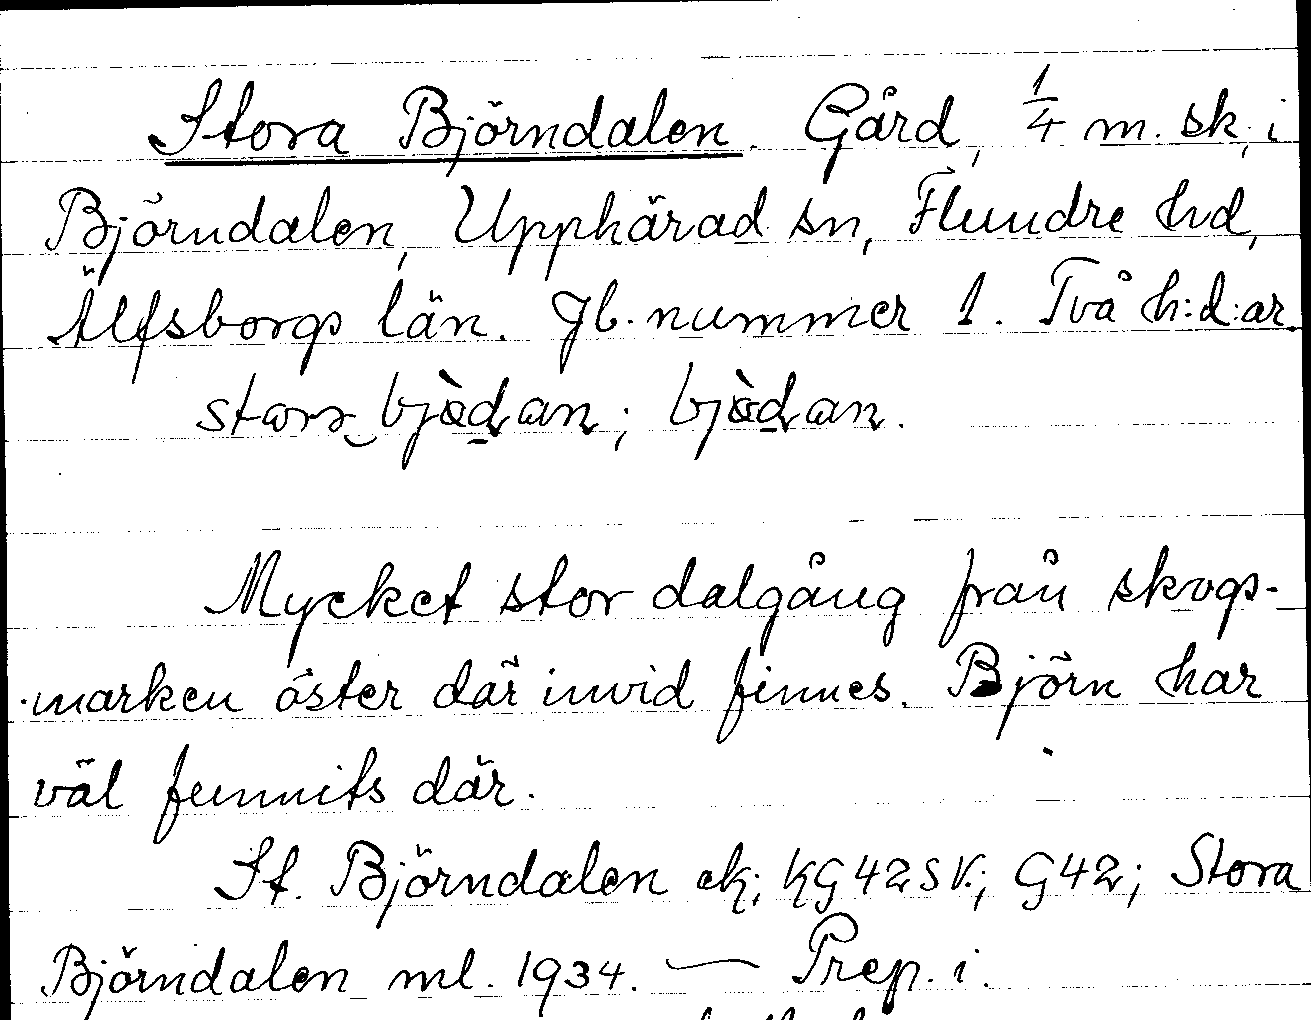 Stora Björndalen. Gård, 1/4 m. sk, i
Björndalen, Upphärad sn, Flundre hd,
Älfsborgs län. Jb. nummer 1. Två h:d:ar.
Mycket stor dalgång från skogs-
marken öster där invid finnes. Björn har
väl funnits där.
St. Björndalen ek; KG42SV.; G42; Stora
Björndalen ml. 1934. — Prep. i.